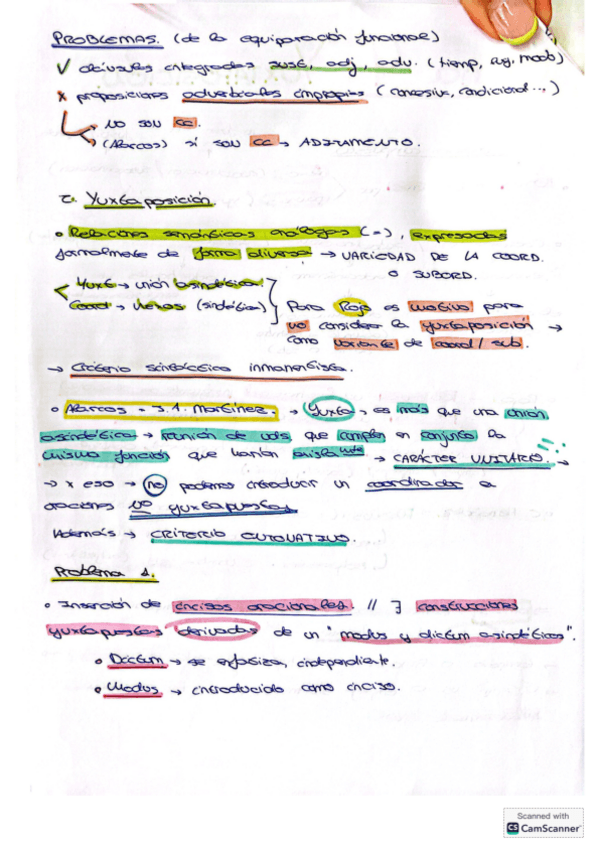 PROBLEMAS. (de la equiparación funcional)
✓ cláusulas integradas sust, adj, adv. (tiemp, lug, modo)
x proposiciones adverbiales impropias (concesivas, condicional...)
NO SON CC.
(Alarcos) sí son CC → ADITAMENTO.
2. Yuxtaposición.
• Relaciones semánticas análogas (=), expresadas
formalmente de forma diversa → VARIEDAD DE LA COORD.
O SUBORD.
Yuxt → unión asindética
Coord → nexos (sindética)
Para Rojo es motivo para
no considerar la yuxtaposición →
como variante de coord/sub.
→ Criterio sintáctico inmanentista.
• Alarcos + J.A. Martínez. → Yuxta → es más que una unión
asindética → reunión de uds. que cumplen en conjunto la
misma función que harían aislada mte → CARÁCTER UNITARIO. →
→ x eso → no podemos introducir un coordinador a
oraciones NO yuxtapuestas
Además → CRITERIO ENTONATIVO.
Problema 1.
• Inserción de incisos oracionales. // ∃ construcciones
yuxtapuestas "derivadas de un "modus y dictum asindéticos".
• Dictum → se enfatiza, independiente.
• Modus → introducido como inciso.
Scanned with
CS CamScanner